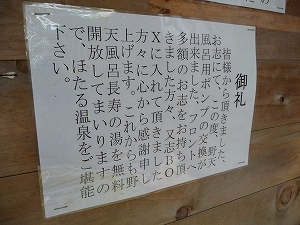 御礼
皆様から頂きました、
お志にて、この度、野天
風呂用ポンプの交換が
出来ました、フロントへ
多額のお志をお持ち頂
きました方々、又志BO
Xに入れて頂きました
方々に心から感謝申し
上げます。これからも野
天風呂長寿の湯を無料
開放してまいりますの
で、ほたる温泉をご堪能
下さい。